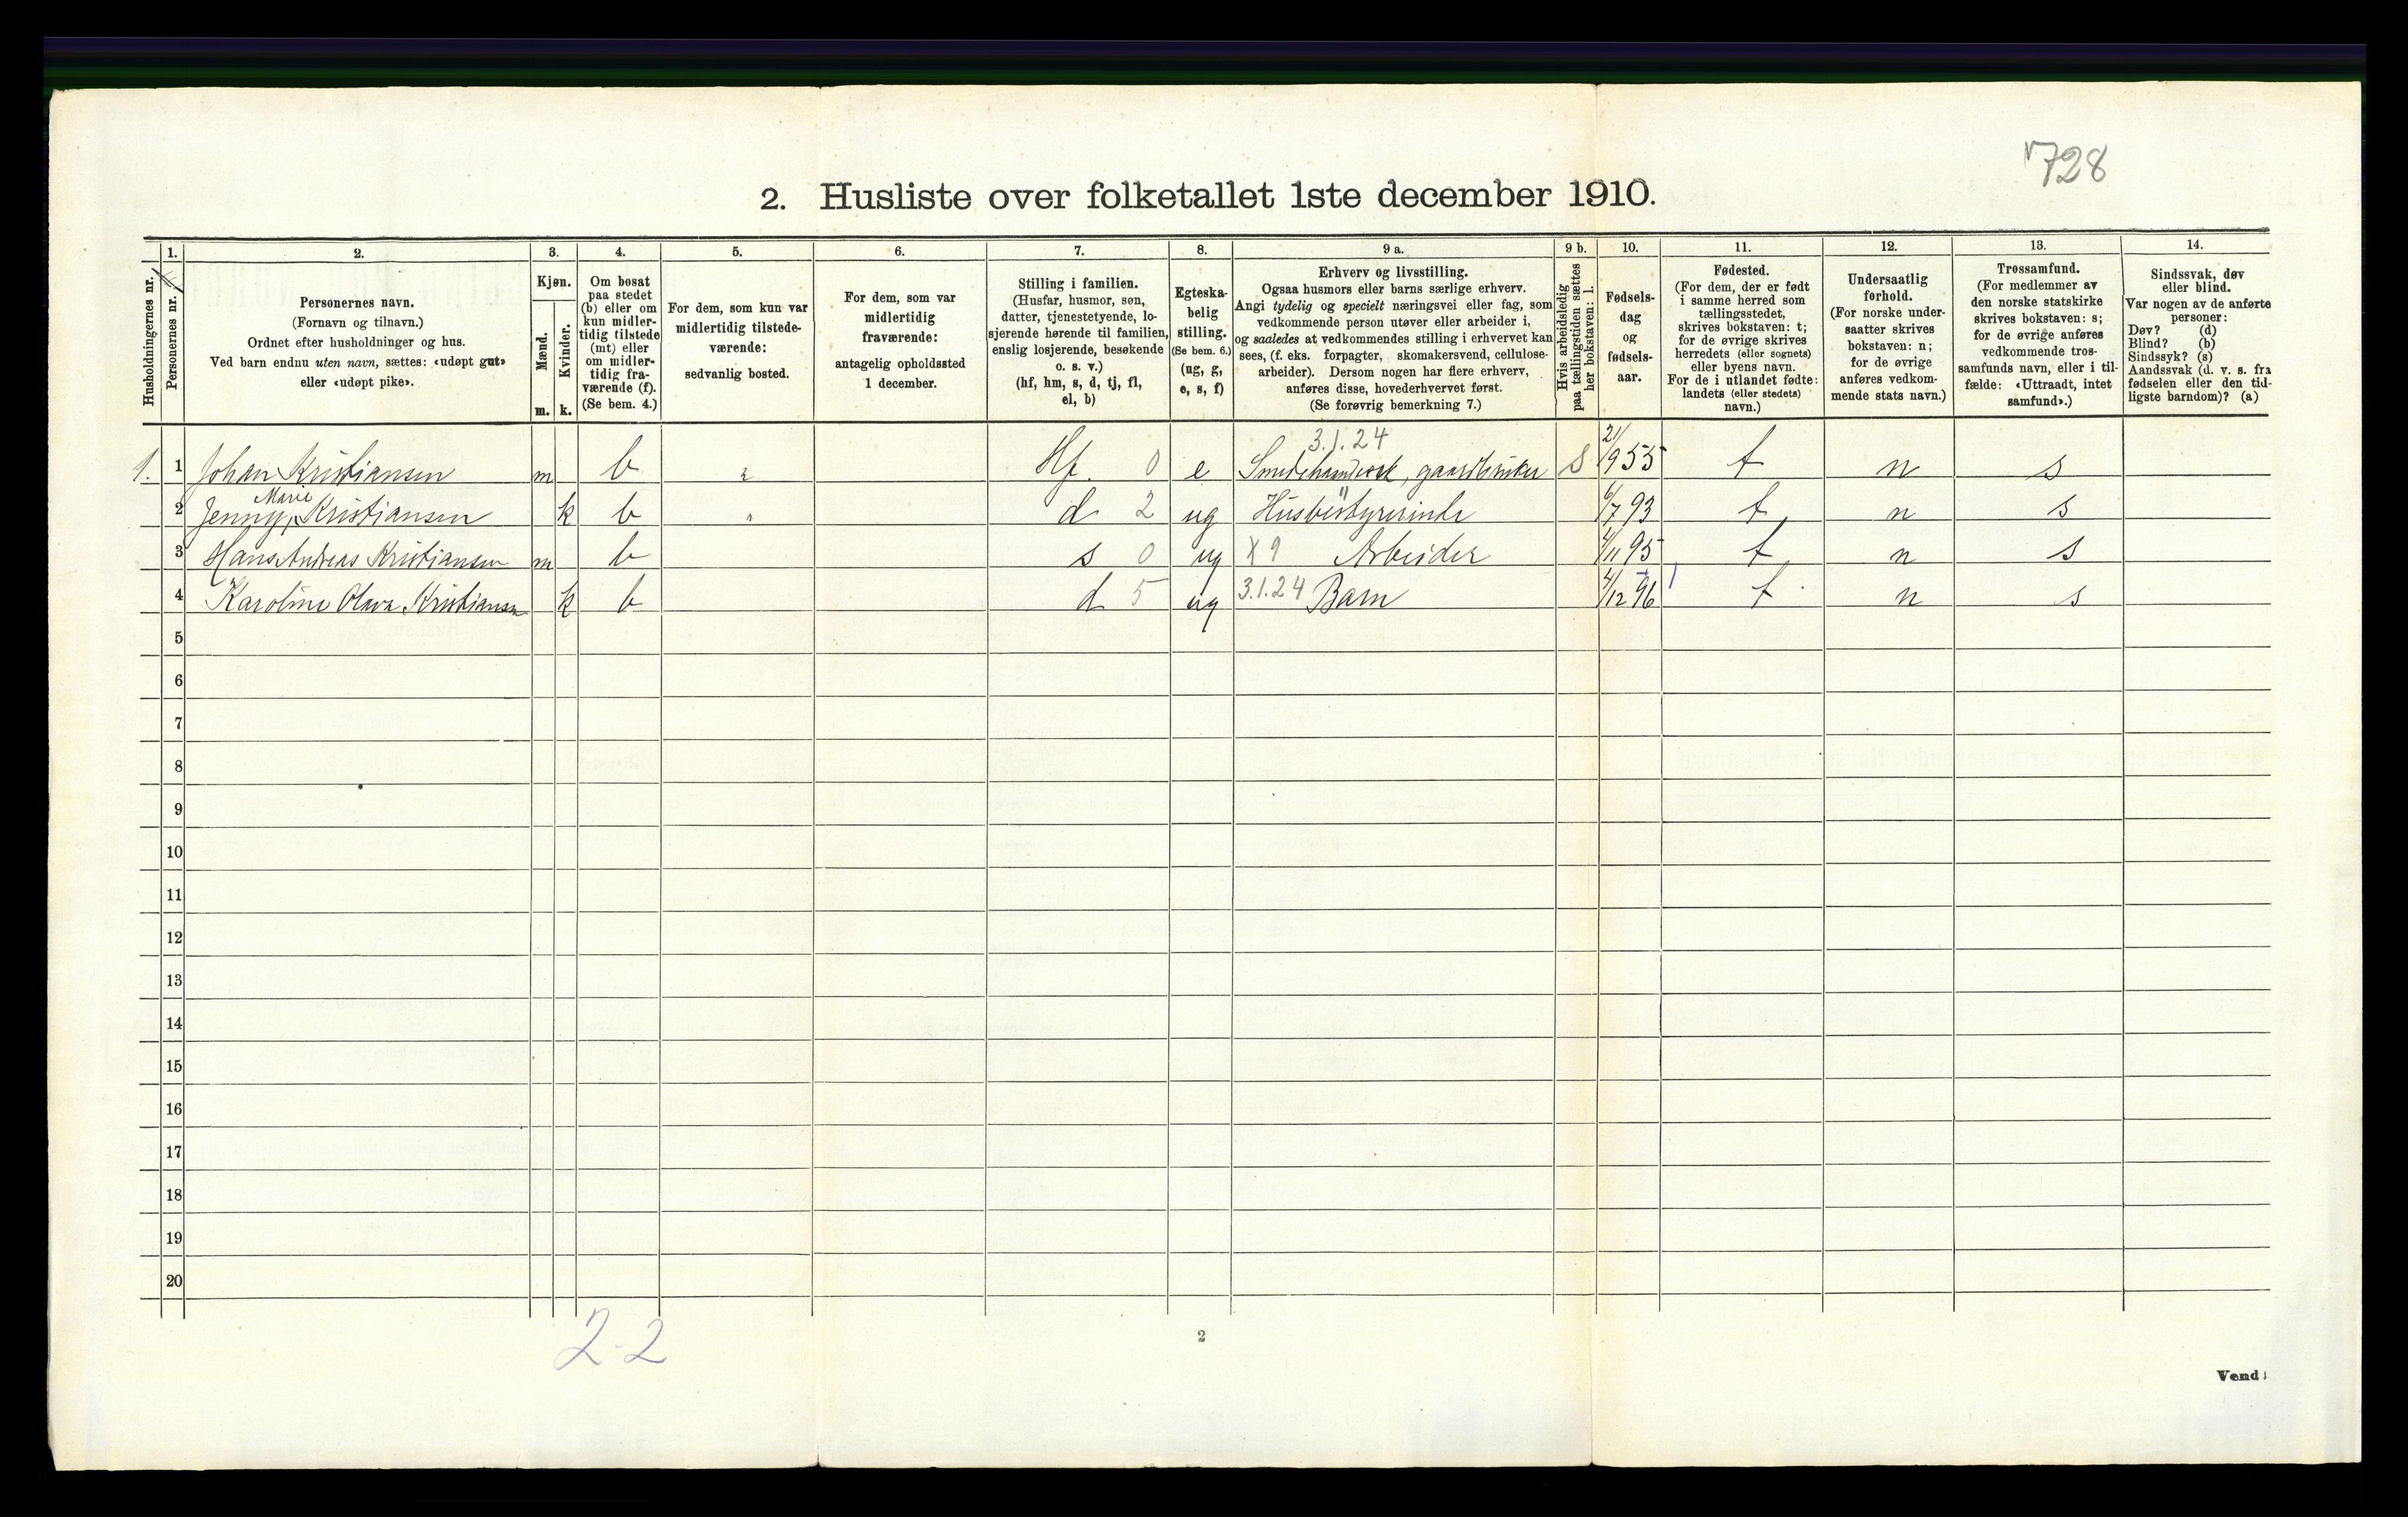 728
2. Husliste over folketallet 1ste december 1910.
Husholdningernes nr.
1.
Personernes nr.
2.
Personernes navn.
(Fornavn og tilnavn.)
Ordnet efter husholdninger og hus.
Ved barn endnu uten navn, sættes: «udøpt gut»
eller «udøpt pike».
3.
Kjøn.
Mænd.
Kvinder.
m. k.
4.
Om bosat
paa stedet
(b) eller om
kun midler-
tidig tilstede
(mt) eller
om midler-
tidig fra-
værende (f).
(Se bem. 4.)
5.
For dem, som kun var
midlertidig tilstede-
værende:
sedvanlig bosted.
6.
For dem, som var
midlertidig
fraværende:
antagelig opholdssted
1 december.
7.
Stilling i familien.
(Husfar, husmor, søn,
datter, tjenestetyende, lo-
sjerende hørende til familien,
enslig losjerende, besøkende
o. s. v.)
(hf, hm, s, d, tj, fl,
el, b)
8.
Egteska-
belig
stilling.
(Se bem. 6.)
(ug, g,
e, s, f)
9 a.
Erhverv og livsstilling.
Ogsaa husmors eller barns særlige erhverv.
Angi tydelig og specielt næringsvei eller fag, som
vedkommende person utøver eller arbeider i,
og saaledes at vedkommendes stilling i erhvervet kan
sees, (f. eks. forpagter, skomakersvend, cellulose-
arbeider). Dersom nogen har flere erhverv,
anføres disse, hovederhvervet først.
(Se forøvrig bemerkning 7.)
9 b.
Hvis arbeidsledig
paa tællingstiden sættes
her bokstaven: l.
10.
Fødsels-
dag
og
fødsels-
aar.
11.
Fødested.
(For dem, der er født
i samme herred som
tællingsstedet,
skrives bokstaven: t;
for de øvrige skrives
herredets (eller sognets)
eller byens navn.
For de i utlandet fødte:
landets (eller stedets)
navn.)
12.
Undersaatlig
forhold.
(For norske under-
saatter skrives
bokstaven: n;
for de øvrige
anføres vedkom-
mende stats navn.)
13.
Trossamfund.
(For medlemmer av
den norske statskirke
skrives bokstaven: s;
for de øvrige anføres
vedkommende tros-
samfunds navn, eller i til-
fælde: «Uttraadt, intet
samfund».)
14.
Sindssvak, døv
eller blind.
Var nogen av de anførte
personer:
Døv? (d)
Blind? (b)
Sindssyk? (s)
Aandssvak (d. v. s. fra
fødselen eller den tid-
ligste barndom)? (a)
3.1.24
1. 1 Johan Kristiansen m b " Hf. 0 e Smedehandverk, gaardbruker S 21/9 55 t n s
Marie
2 Jenny, Kristiansen k b " d 2 ug Husbestyrerinde 6/7 93 t n s
3 Hans Andreas Kristiansen m b s 0 ug X 9 Arbeider 4/11 95 t n s
4 Karoline Olava Kristiansen k b d 5 ug 3.1.24 Barn 4/12 96 t n s
5
6
7
8
9
10
11
12
13
14
15
16
17
18
19
20
2-2
2
Vend!